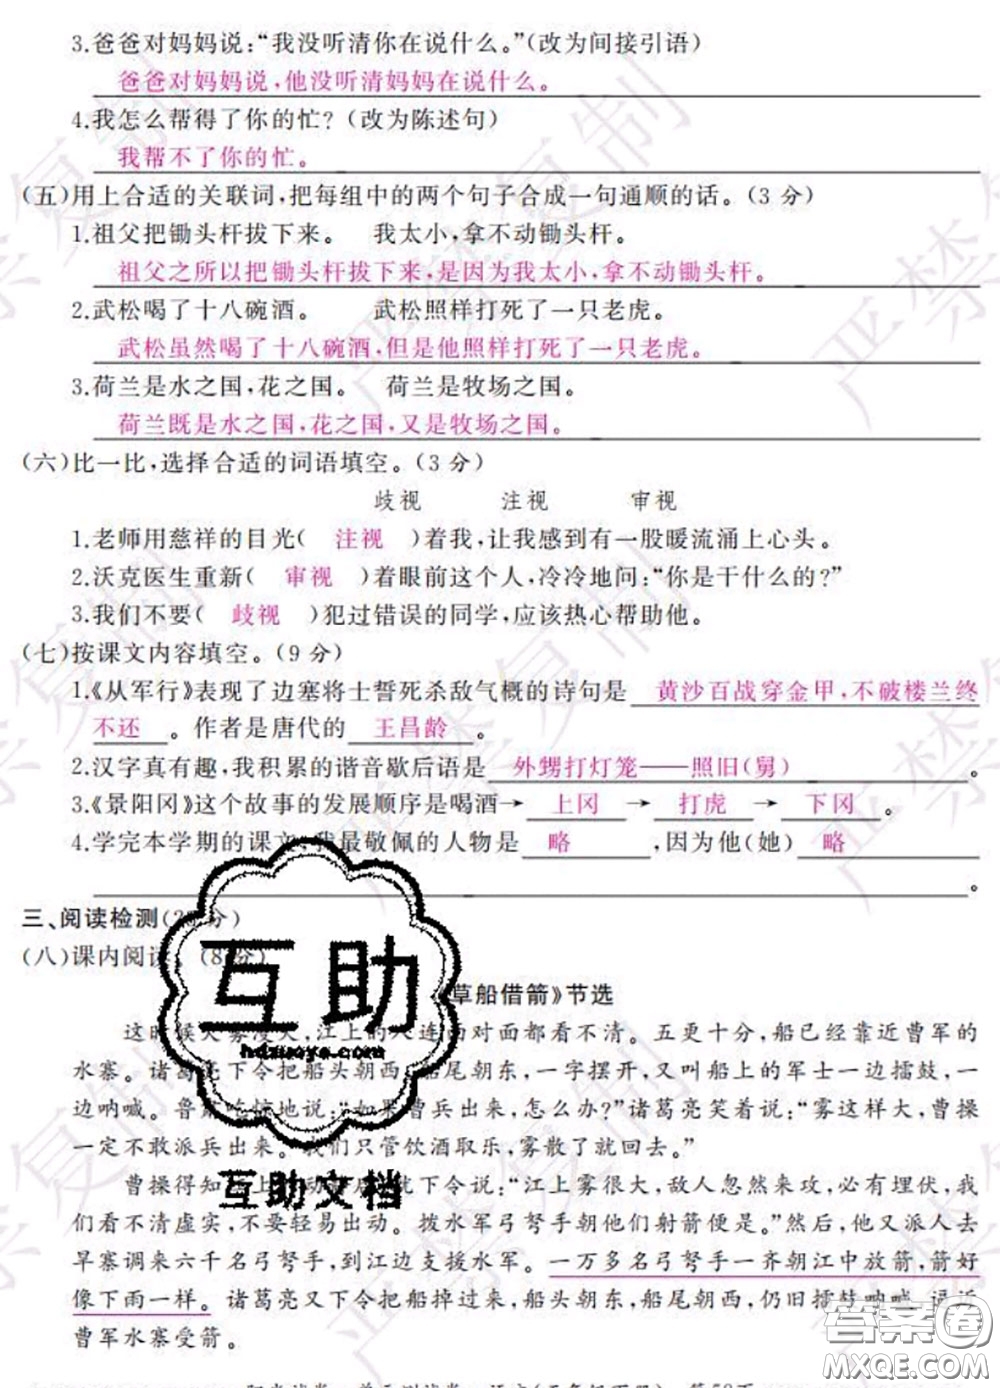 3.爸爸对妈妈说:“我没听清你在说什么。”(改为间接引语)
爸爸对妈妈说,他没听清妈妈在说什么。
4.我怎么帮得了你的忙?(改为陈述句)
我帮不了你的忙。
(五)用上合适的关联词,把每组中的两个句子合成一句通顺的话。(3 分)
1.祖父把锄头杆拔下来。 我太小,拿不动锄头杆。
祖父之所以把锄头杆拔下来,是因为我太小,拿不动锄头杆。
2.武松喝了十八碗酒。 武松照样打死了一只老虎。
武松虽然喝了十八碗酒,但是他照样打死了一只老虎。
3.荷兰是水之国,花之国。 荷兰是牧场之国。
荷兰既是水之国,花之国,又是牧场之国。
(六)比一比,选择合适的词语填空。(3 分)
歧视 注视 审视
1.老师用慈祥的目光( 注视 )着我,让我感到有一股暖流涌上心头。
2.沃克医生重新( 审视 )着眼前这个人,冷冷地问:“你是干什么的?”
3.我们不要( 歧视 )犯过错误的同学,应该热心帮助他。
(七)按课文内容填空。(9 分)
1.《从军行》表现了边塞将士誓死杀敌气概的诗句是 黄沙百战穿金甲,不破楼兰终
不还 。作者是唐代的 王昌龄 。
2.汉字真有趣,我积累的谐音歇后语是 外甥打灯笼——照旧(舅) 。
3.《景阳冈》这个故事的发展顺序是喝酒→ 上冈 → 打虎 → 下冈 。
4.学完本学期的课文,我最敬佩的人物是 略 ,因为他(她) 略
。
三、阅读检测( 分)
(八)课内阅读。(8 分)
草船借箭》节选
这时候大雾漫天,江上的人连面对面都看不清。五更十分,船已经靠近曹军的
水寨。诸葛亮下令把船头朝西,船尾朝东,一字摆开,又叫船上的军士一边擂鼓,一
边呐喊。鲁肃吃惊地说:“如果曹兵出来,怎么办?”诸葛亮笑着说:“雾这样大,曹操
一定不敢派兵出来。我们只管饮酒取乐,雾散了就回去。”
曹操得知江上的动静后,就下令说:“江上雾很大,敌人忽然来攻,必有埋伏,我
们看不清虚实,不要轻易出动。拨水军弓弩手朝他们射箭便是。”然后,他又派人去
旱寨调来六千名弓弩手,到江边支援水军。一万多名弓弩手一齐朝江中放箭,箭好
像下雨一样。诸葛亮又下令把船掉过来,船头朝东,船尾朝西,仍旧擂鼓呐喊,逼近
曹军水寨受箭。
互助
hdzuoye.com
互助文档
严禁复制
答案圈
MXQE.COM